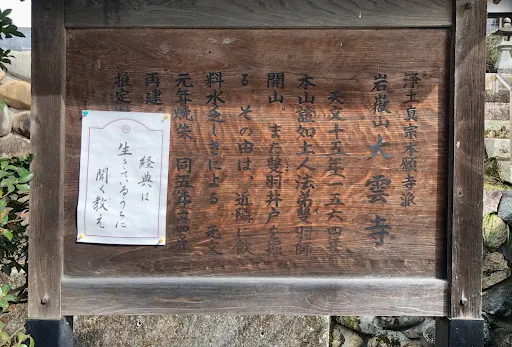 浄土真宗本願寺派
岩嶽山 大雲寺
天文十五年一五六四年
本山證如上人法弟雙羽師
開山。また雙羽井戸を掘
る その由は、近隣に飲
料水乏しきによる。元文
元年焼失、同五年
再建
推定
経典は
生きているうちに
聞く教え